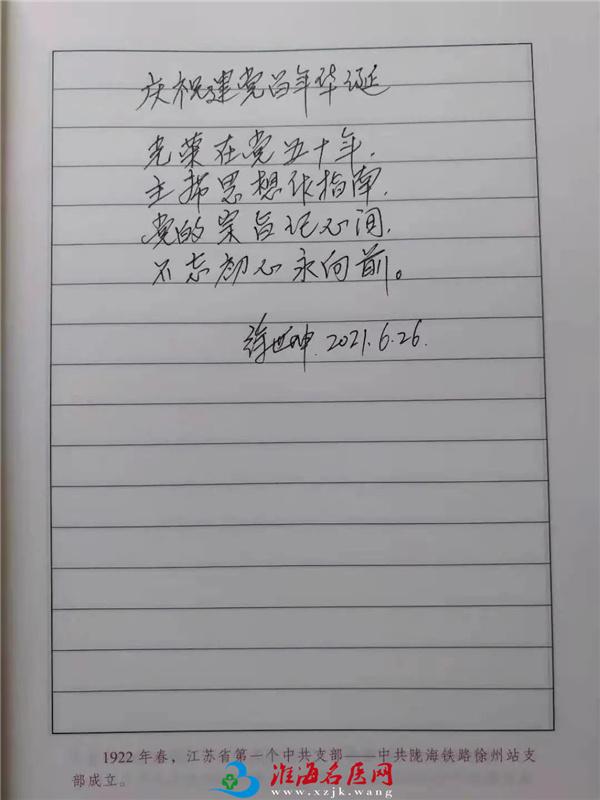 庆祝建党百年华诞
光荣在党五十年,
主席思想作指南,
党的宗旨记心间,
不忘初心永向前。
徐世坤 2021.6.26.
1922 年春，江苏省第一个中共支部——中共陇海铁路徐州站支
部成立。
淮海名医网
www.xzjk.wang